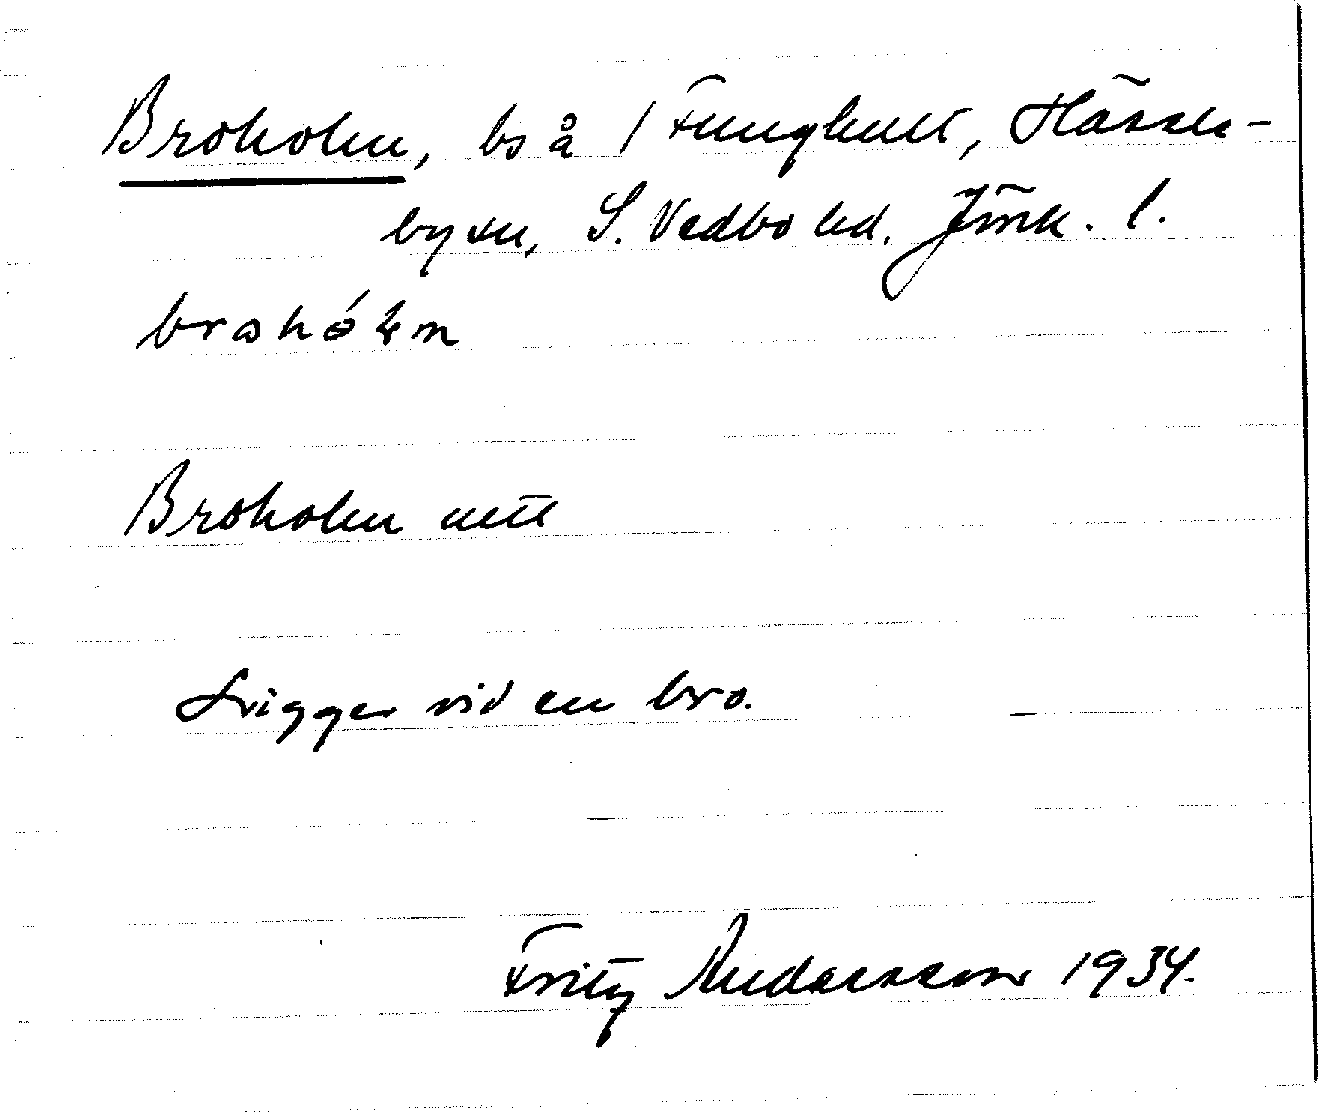 Broholm, bs å 1 Funghult, Hässle-
by sn, S. Vedbo hd. Jönk. l.
Broholm
Ligger vid en bro.
Fritz Andersson 1934.